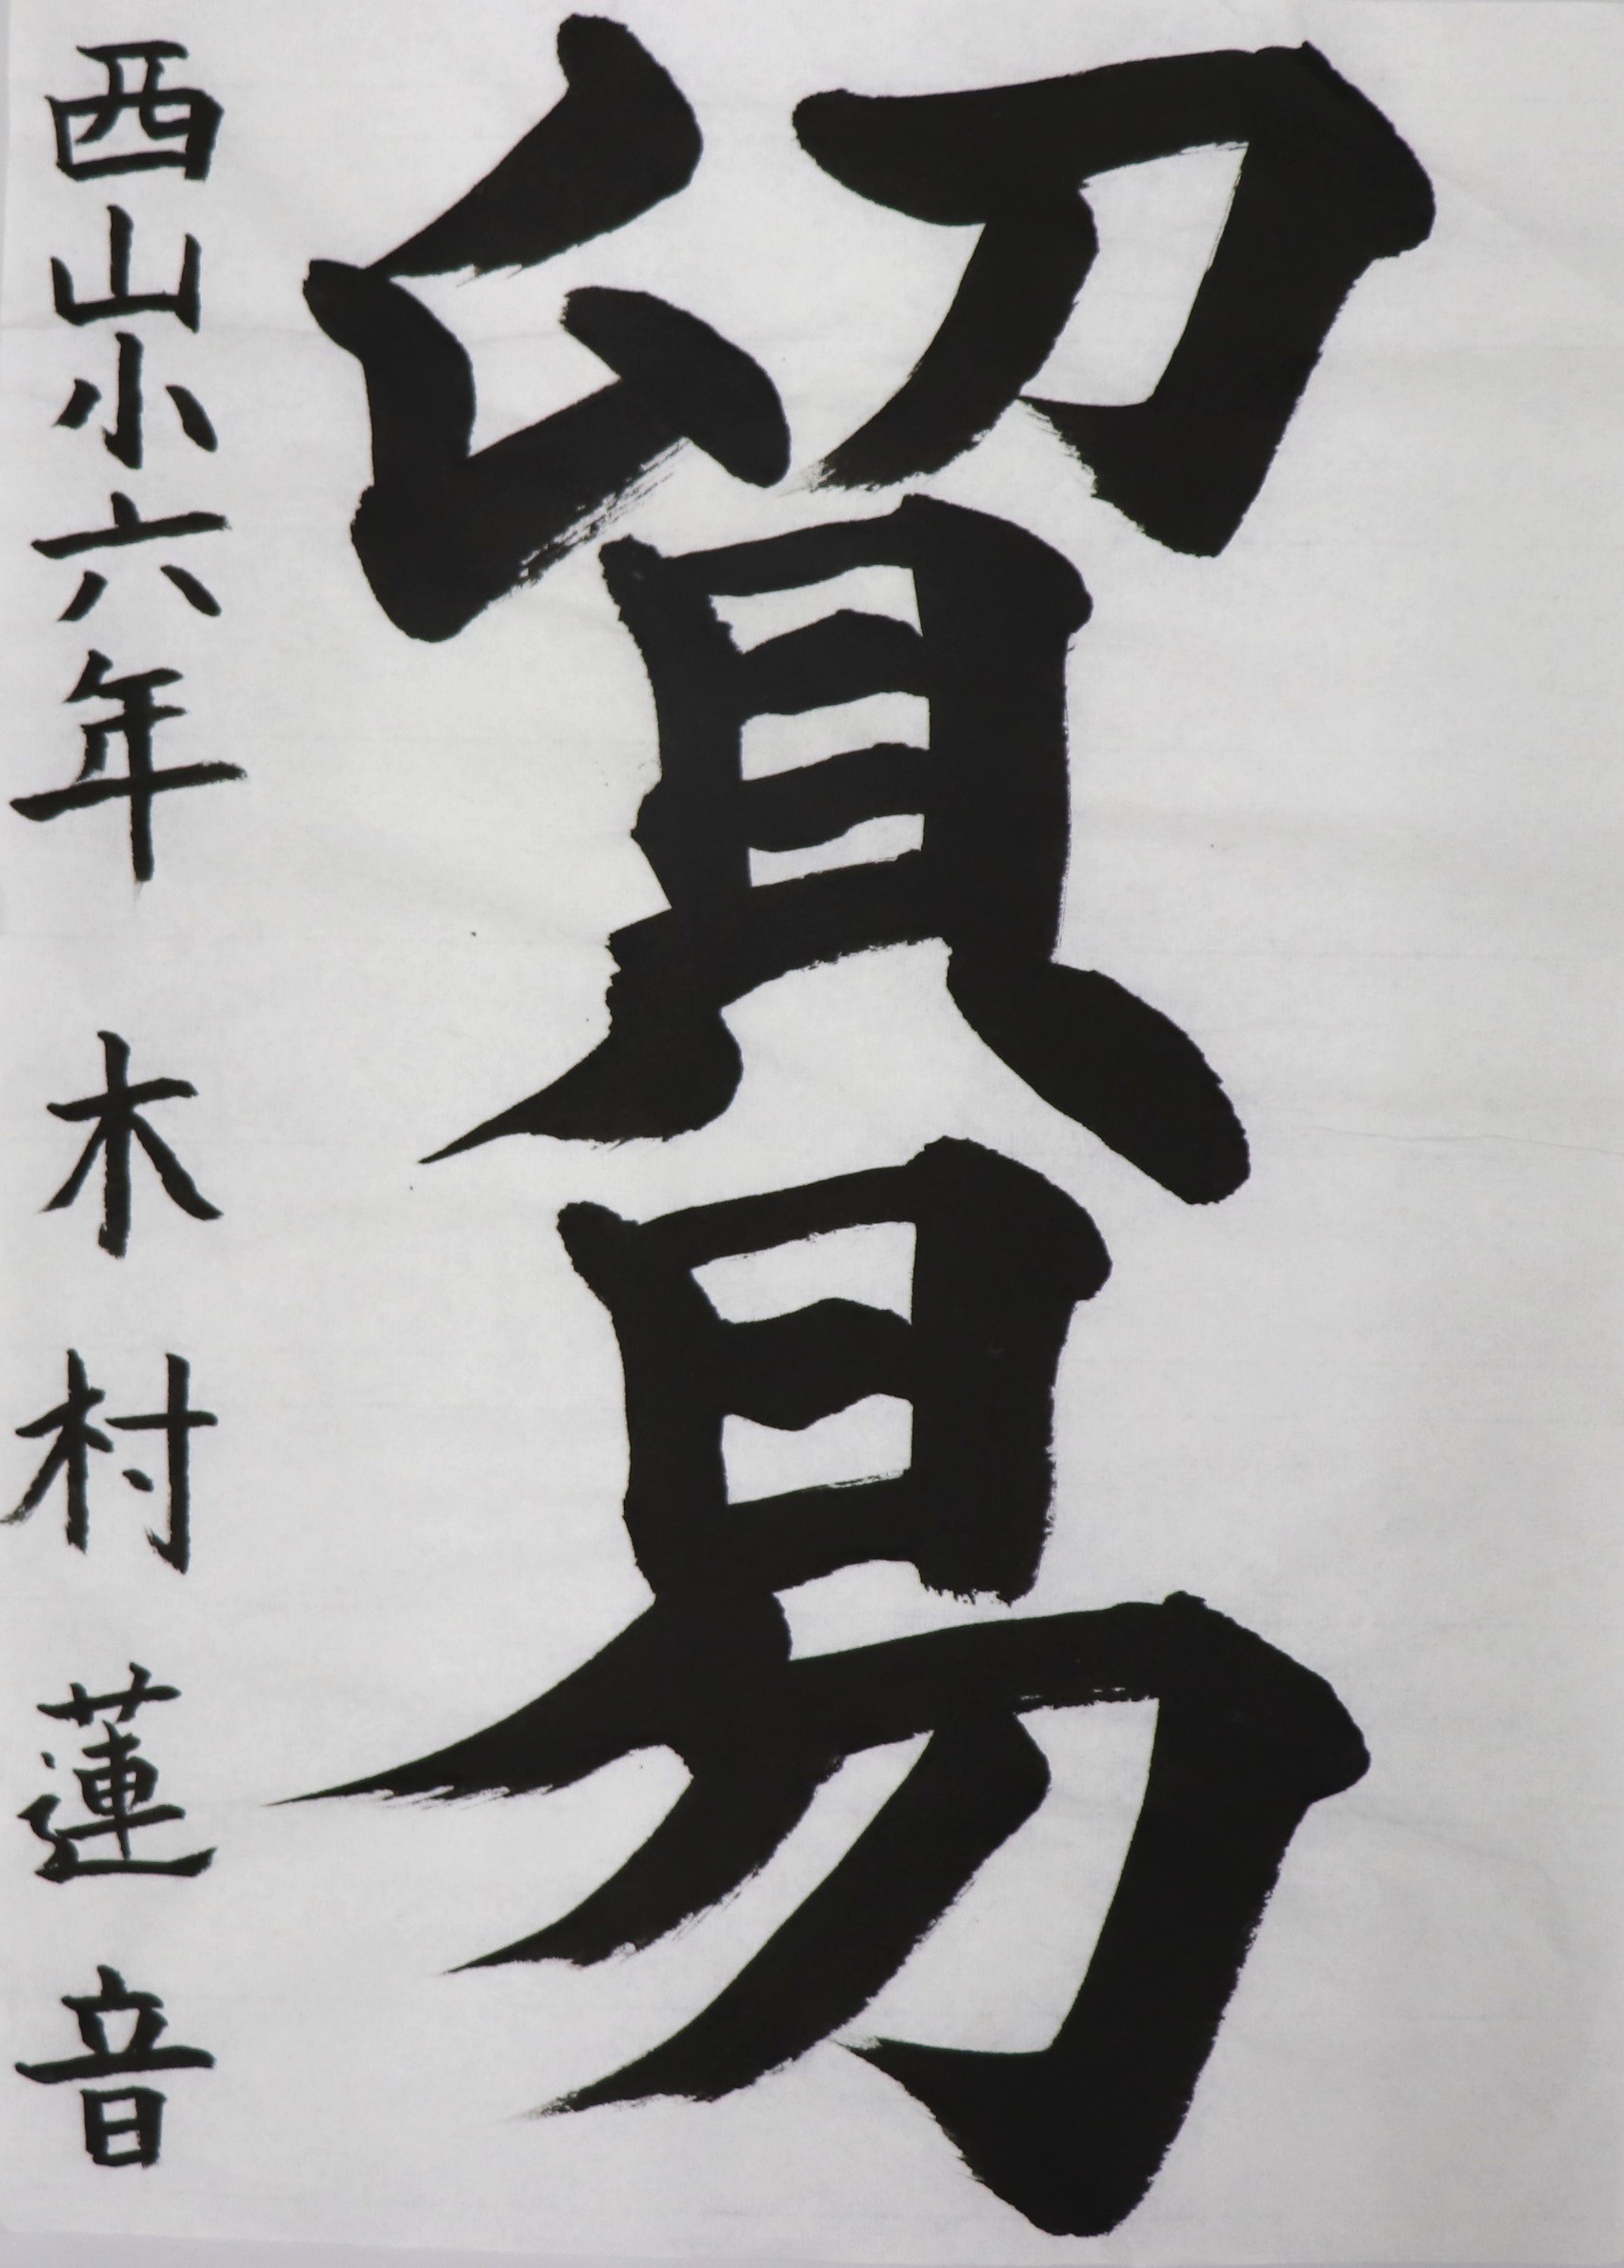 貿易
西山小六年 木村蓮音